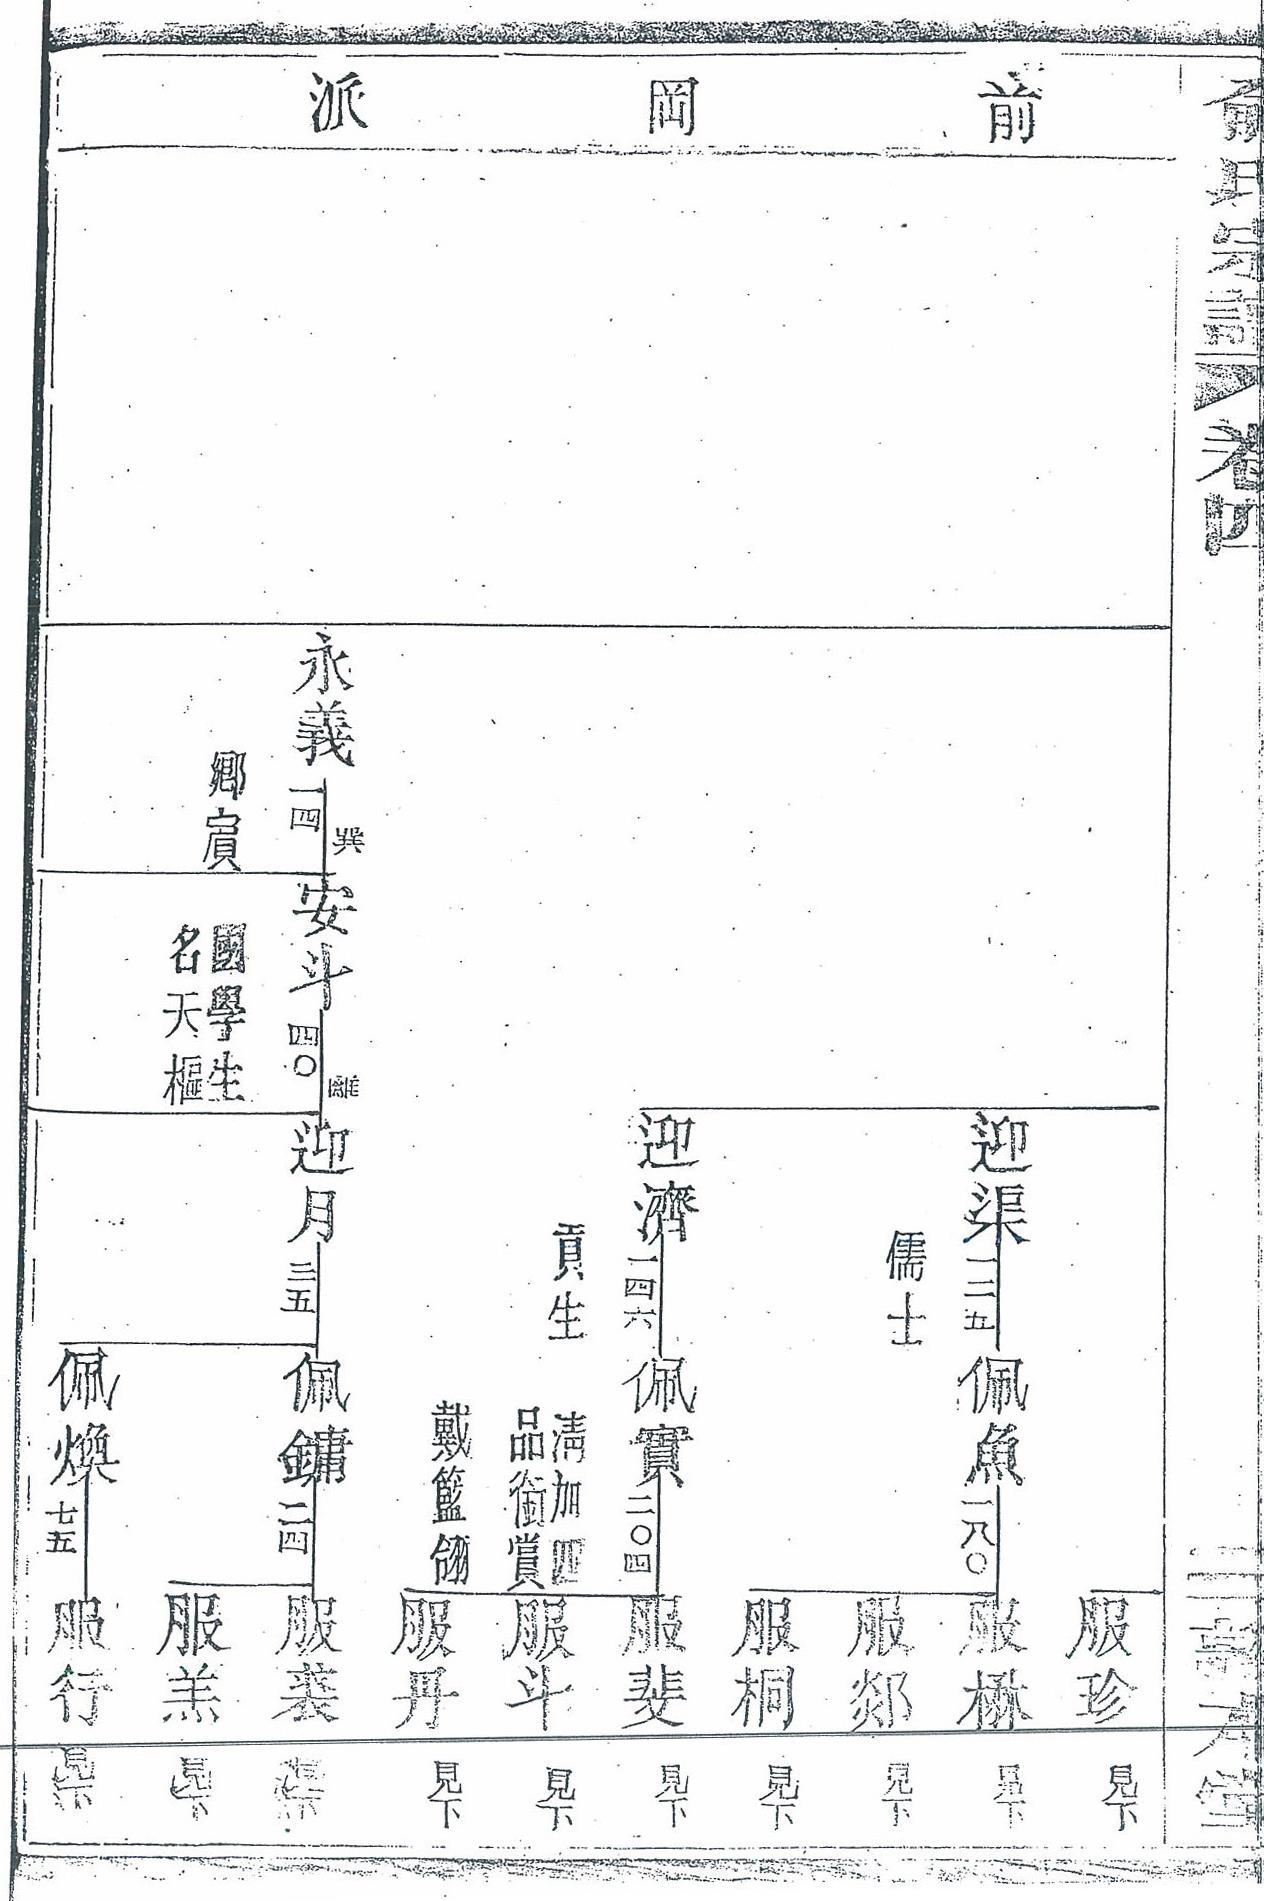 俞氏宗譜
卷四
前岡派
永義
一四
巽
鄉賓
安斗
四〇
離
國學生
名天樞
迎渠
一二五
儒士
迎濟
一四六
貢生
迎月
三五
佩魚
一八〇
佩實
二〇四
淸加四
品銜賞
戴籃翎
佩鏞
二四
佩煥
七五
服珍
服楙
服郯
服桐
服斐
服斗
服丹
服裘
服羔
服行
見下
見下
見下
見下
見下
見下
見下
見下
見下
見下